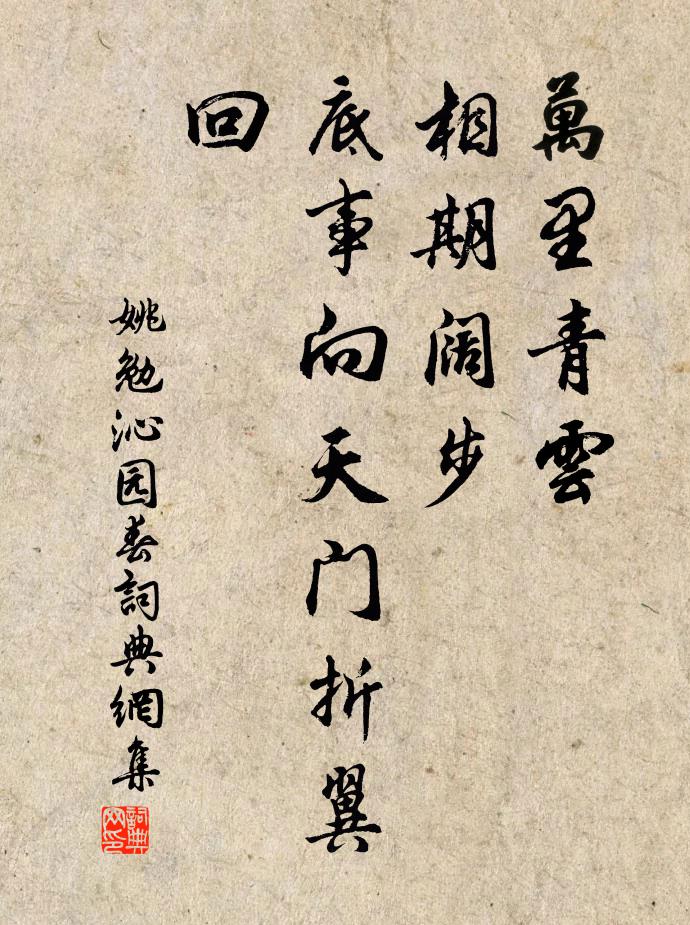 萬里青雲
相期阔步
底事向天门折翼
回
姚勉沁园春詞典網集
詞典网印